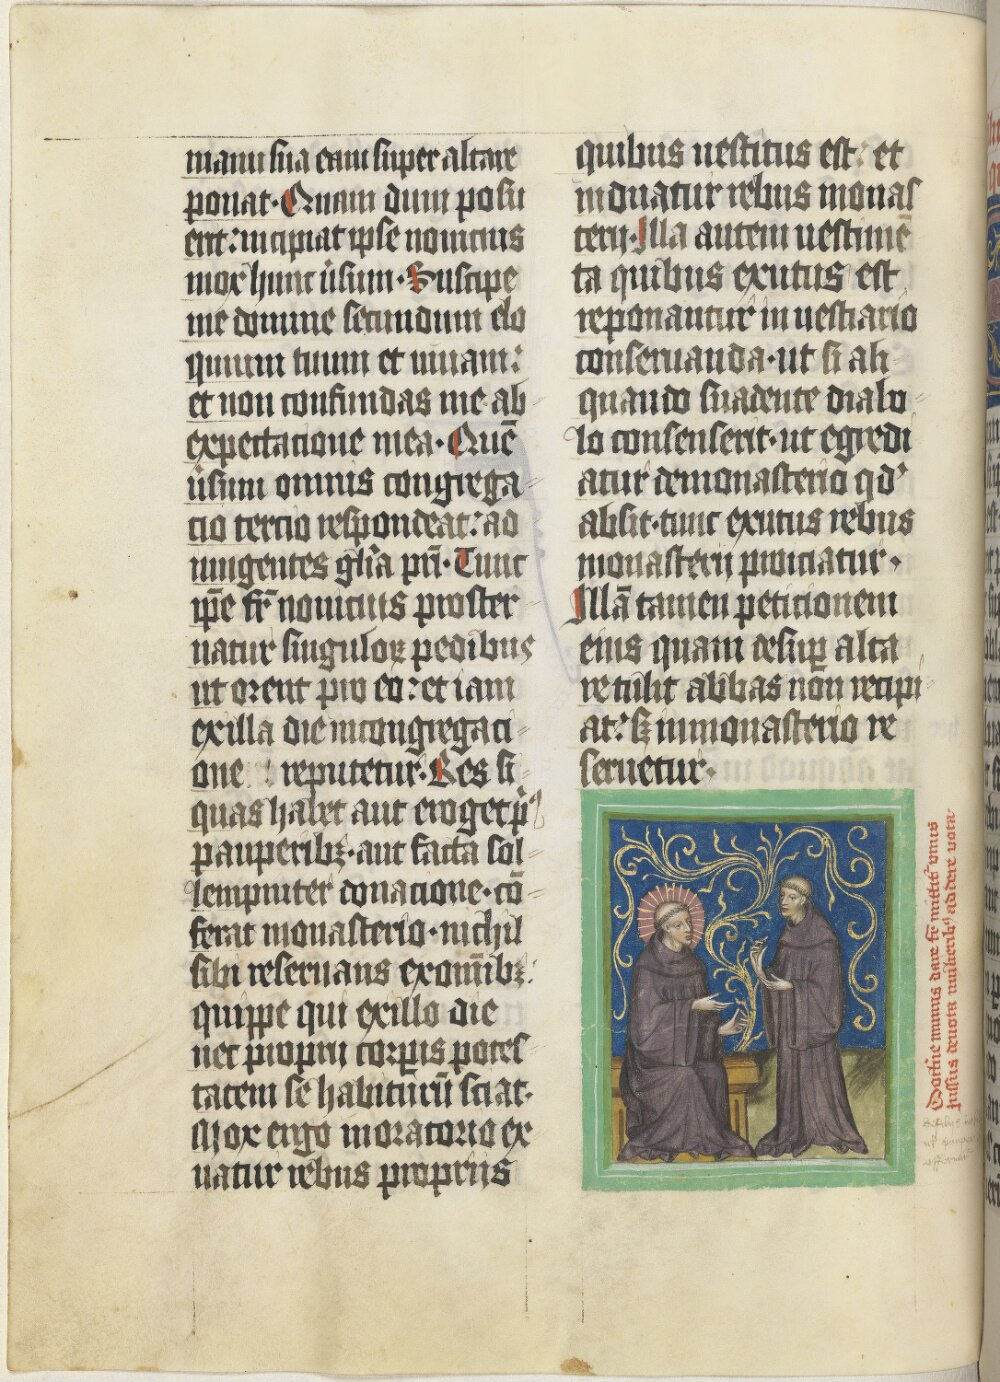 manu sua eam super altare
ponat. Quam dum posu
erit: incipiat ipse nouicius
mox hunc ůsum. Suscipe
me domine secundum elo
quium tuum et uiuam:
et non confundas me ab
expectacione mea. Quē
ůsum omnis congrega
cio tercio respondeat: ad
iungentes gl̄ia pr̄i. Tunc
ip̄e fr̄ nouicius proster
natur singuloꝝ pedibus
ut orent pro eo: et iam
exilla die incongregaci
one reputetur. Res si
quas habet aut erogetp̄
pauperibꝫ. aut facta sol
lempniter donacione. cō
ferat monasterio. nichil
sibi reseruans exom̄ibꝫ.
quippe qui exillo die
nec proprii corꝑis potes
tatem se habiturū sciat.
Mox ergo inoratorio ex
uatur rebus propriis
quibus uestitus est: et
induatur rebus monas
terii. Illa autem uestimē
ta quibus exutus est
reponantur in uestiario
conseruanda. ut si ali
quando suadente diabo
lo consenserit. ut egredi
atur demonasterio qd'
absit. tunc exutus rebus
monasterii proiciatur.
Illā tamen peticionem
eius quam desuꝑ alta
re tulit abbas non recipi
at: sꝫ inmonasterio re
seruetur.
munus dare fr̄
deuota addere uota